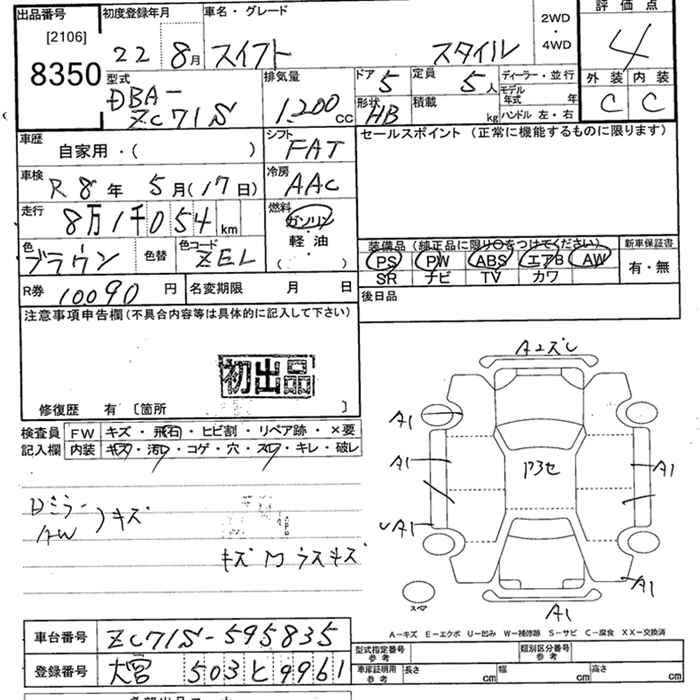 出品番号 初度登録年月 車名・グレード 2WD・4WD 評価点
[2106]
8350 22 8月 スイフト スタイル 4
型式 排気量 ドア 定員 ディーラー・並行 外装 内装
DBA-ZC71S 1,200cc 5 5人 モデル年式 年 C C
形状 HB 積載 kg ハンドル 左・右
車歴 シフト セールスポイント (正常に機能するものに限ります)
自家用・( ) FAT
車検 冷房
R8年 5月(17日) AAC
走行 燃料
8万1千054km ガソリン・軽油・( )
色 色替 色コード 装備品 (純正品に限り○をつけてください) 新車保証書
ブラウン ZEL PS PW ABS エアB AW 有・無
SR ナビ TV カワ
R券 10090円 名変期限 月 日 後日品
注意事項申告欄(不具合内容等は具体的に記入して下さい)
初出品
修復歴 有 〔箇所 〕
検査員 FW キズ・飛石・ヒビ割・リペア跡・×要
記入欄 内装 キズ・汚レ・コゲ・穴・スレ・キレ・破レ
Dミラー
AW キズ
キズ M ウスキズ
A2ズレ
A1
A1
A1
A1
A1
A1
スペア
A－キズ E－エクボ U－凹み W－補修跡 S－サビ C－腐食 XX－交換済
車台番号 ZC71S-595835
型式指定番号 参考 類別区分番号 参考
登録番号 大宮 503 と 9961
車庫証明用 参考 長さ cm 幅 cm 高さ cm